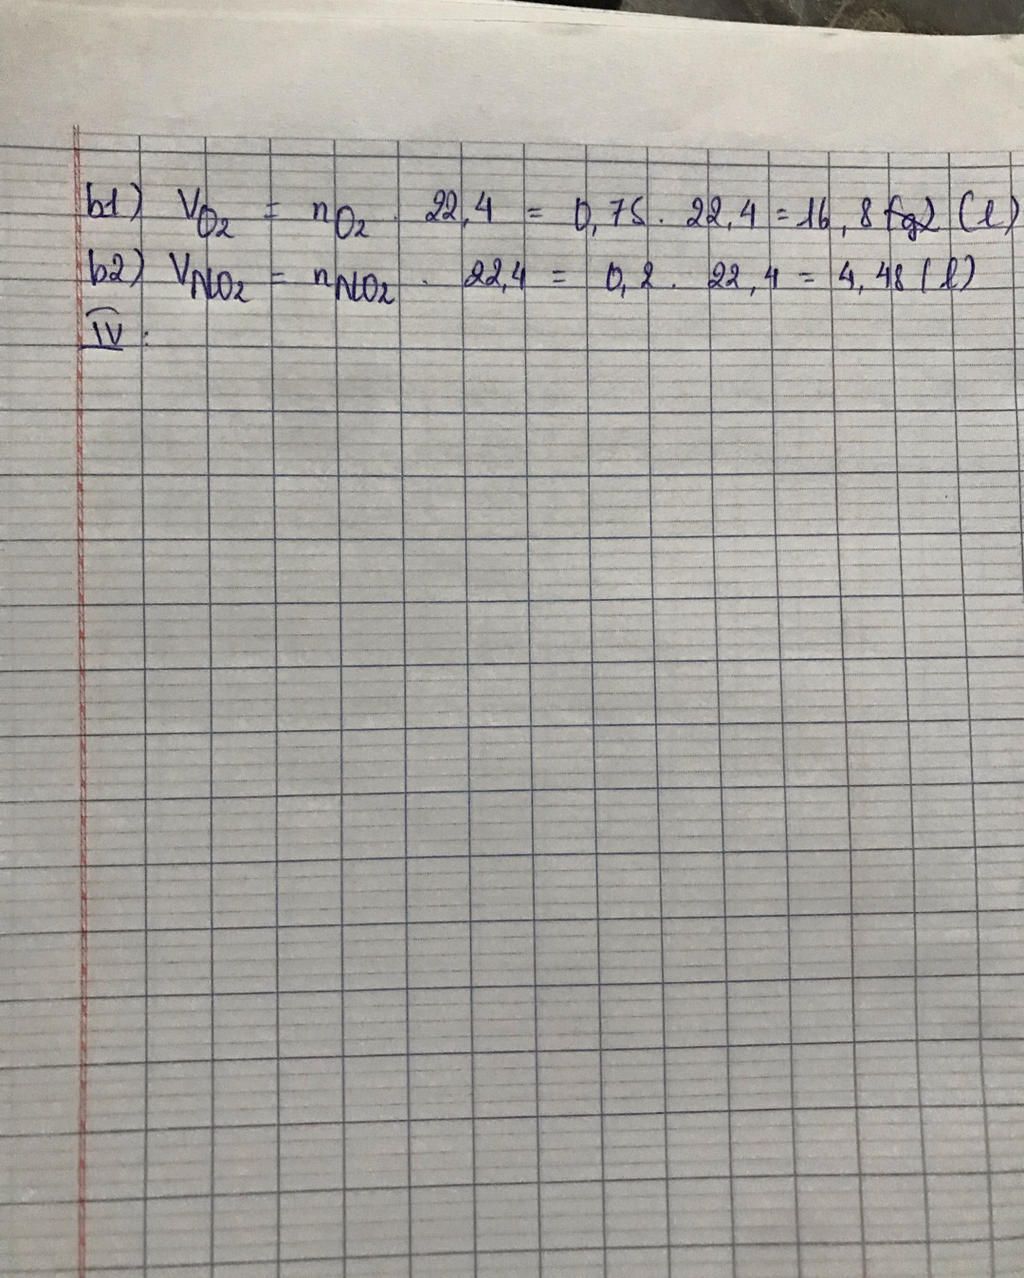 b1) V_O₂ = n_O₂ . 22,4 = 0,75 . 22,4 = 16,8 (l)
b2) V_NO₂ = n_NO₂ . 22,4 = 0,2 . 22,4 = 4,48 (l)
IV: